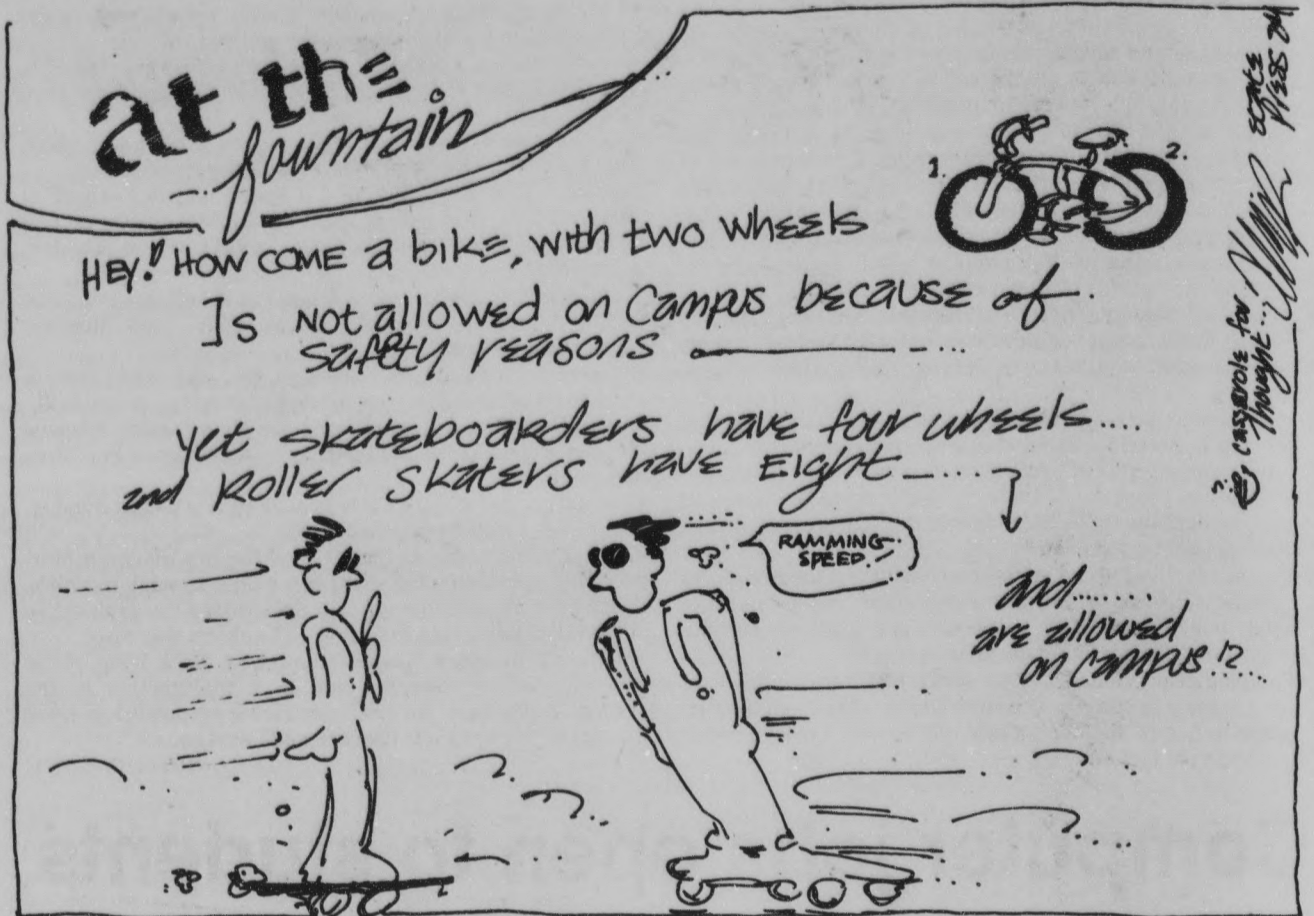 at the
fountain
1.
2.
HEY!! HOW COME a bike, with two wheels
Is not allowed on Campus because of
safety reasons
yet skateboarders have four wheels....
and Roller Skaters have Eight....
RAMMING
SPEED!
and.......
are allowed
on campus!?.....
casserole for
thought...
Press 84